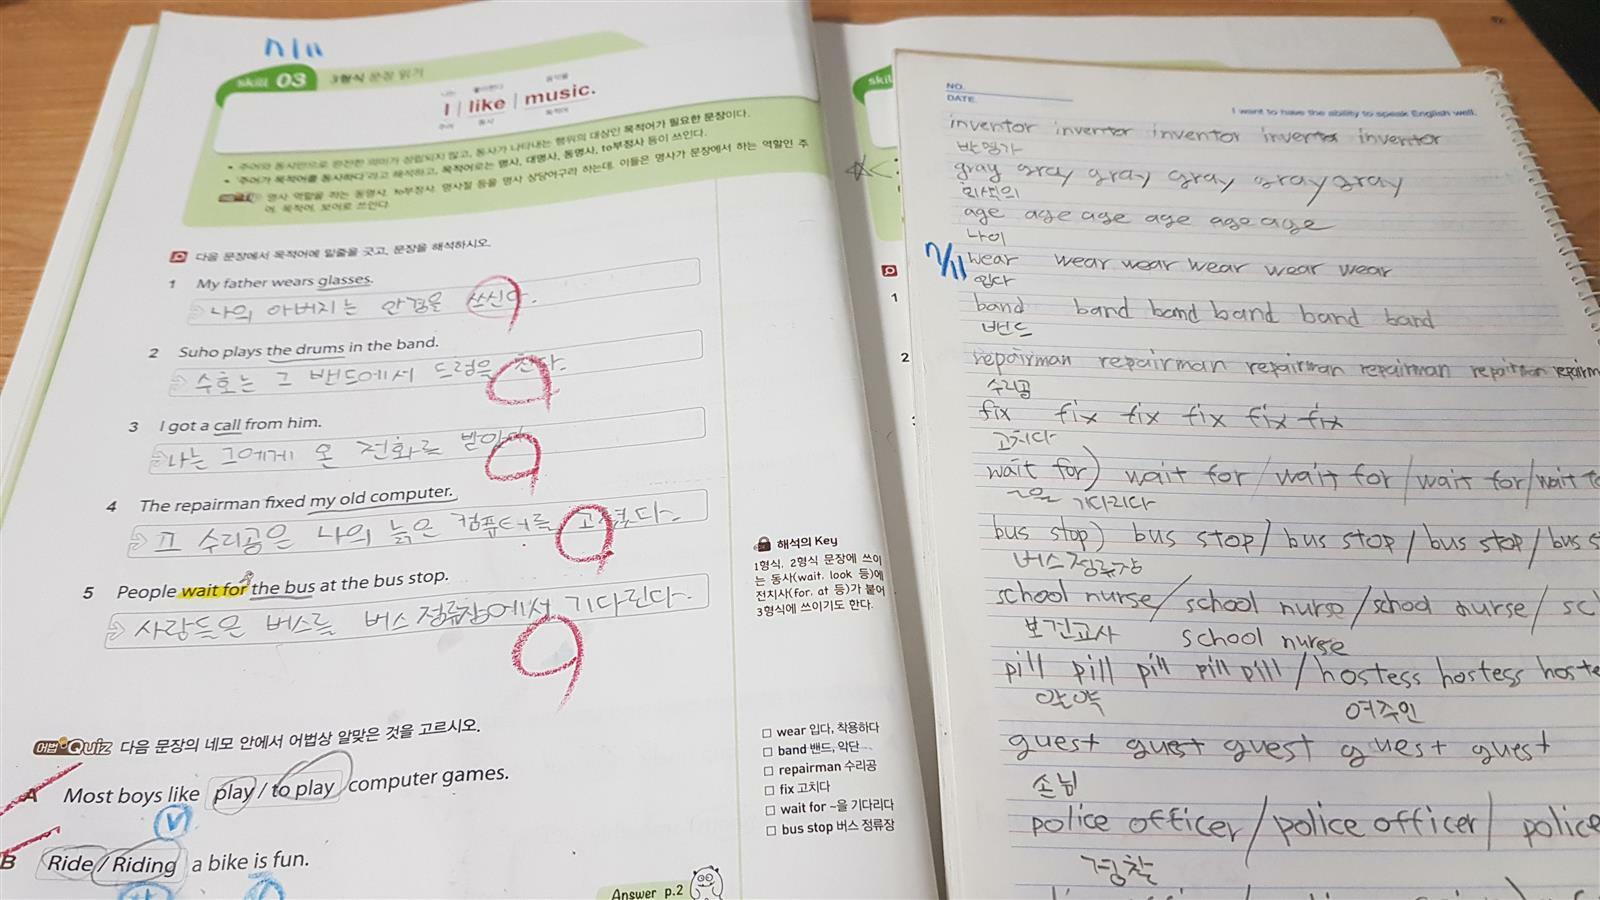 7/11
Skill 03 3형식 문장 읽기
나는 좋아한다 음악을
I | like | music.
주어 동사 목적어
• 주어와 동사만으로 완전한 의미가 성립되지 않고, 동사가 나타내는 행위의 대상인 목적어가 필요한 문장이다.
• '주어가 목적어를 동사하다'라고 해석하고, 목적어로는 명사, 대명사, 동명사, to부정사 등이 쓰인다.
명사 역할을 하는 동명사, to부정사, 명사절 등을 명사 상당어구라 하는데, 이들은 명사가 문장에서 하는 역할인 주
어, 목적어, 보어로 쓰인다.
다음 문장에서 목적어에 밑줄을 긋고, 문장을 해석하시오.
1 My father wears glasses.
나의 아버지는 안경을 쓰신다.
2 Suho plays the drums in the band.
수호는 그 밴드에서 드럼을 친다.
3 I got a call from him.
나는 그에게 온 전화를 받았다
4 The repairman fixed my old computer.
그 수리공은 나의 늙은 컴퓨터를 고쳤다.
5 People wait for the bus at the bus stop.
사람들은 버스를 버스 정류장에서 기다린다.
해석의 Key
1형식, 2형식 문장에 쓰이
는 동사(wait, look 등)에
전치사(for, at 등)가 붙어
3형식에 쓰이기도 한다.
어법 Quiz 다음 문장의 네모 안에서 어법상 알맞은 것을 고르시오.
A Most boys like play / to play computer games.
V
B Ride / Riding a bike is fun.
□ wear 입다, 착용하다
□ band 밴드, 악단
□ repairman 수리공
□ fix 고치다
□ wait for ~을 기다리다
□ bus stop 버스 정류장
Answer p.2
skil
1
2
NO.
DATE.
I want to have the ability to speak English well.
inventor inventor inventor inventor inventor
발명가
gray gray gray gray gray gray
회색의
age age age age age age
나이
7/11
wear wear wear wear wear wear
입다
band band band band band band
밴드
repairman repairman repairman repairman repairman repairm
수리공
fix fix fix fix fix fix
고치다
wait for) wait for / wait for / wait for / wait fo
~을 기다리다
bus stop) bus stop / bus stop / bus stop / bus s
버스정류장
school nurse / school nurse / school nurse / sc
보건교사 school nurse
pill pill pill pill pill / hostess hostess hoste
알약 여주인
guest guest guest guest guest
손님
police officer / police officer / police
경찰